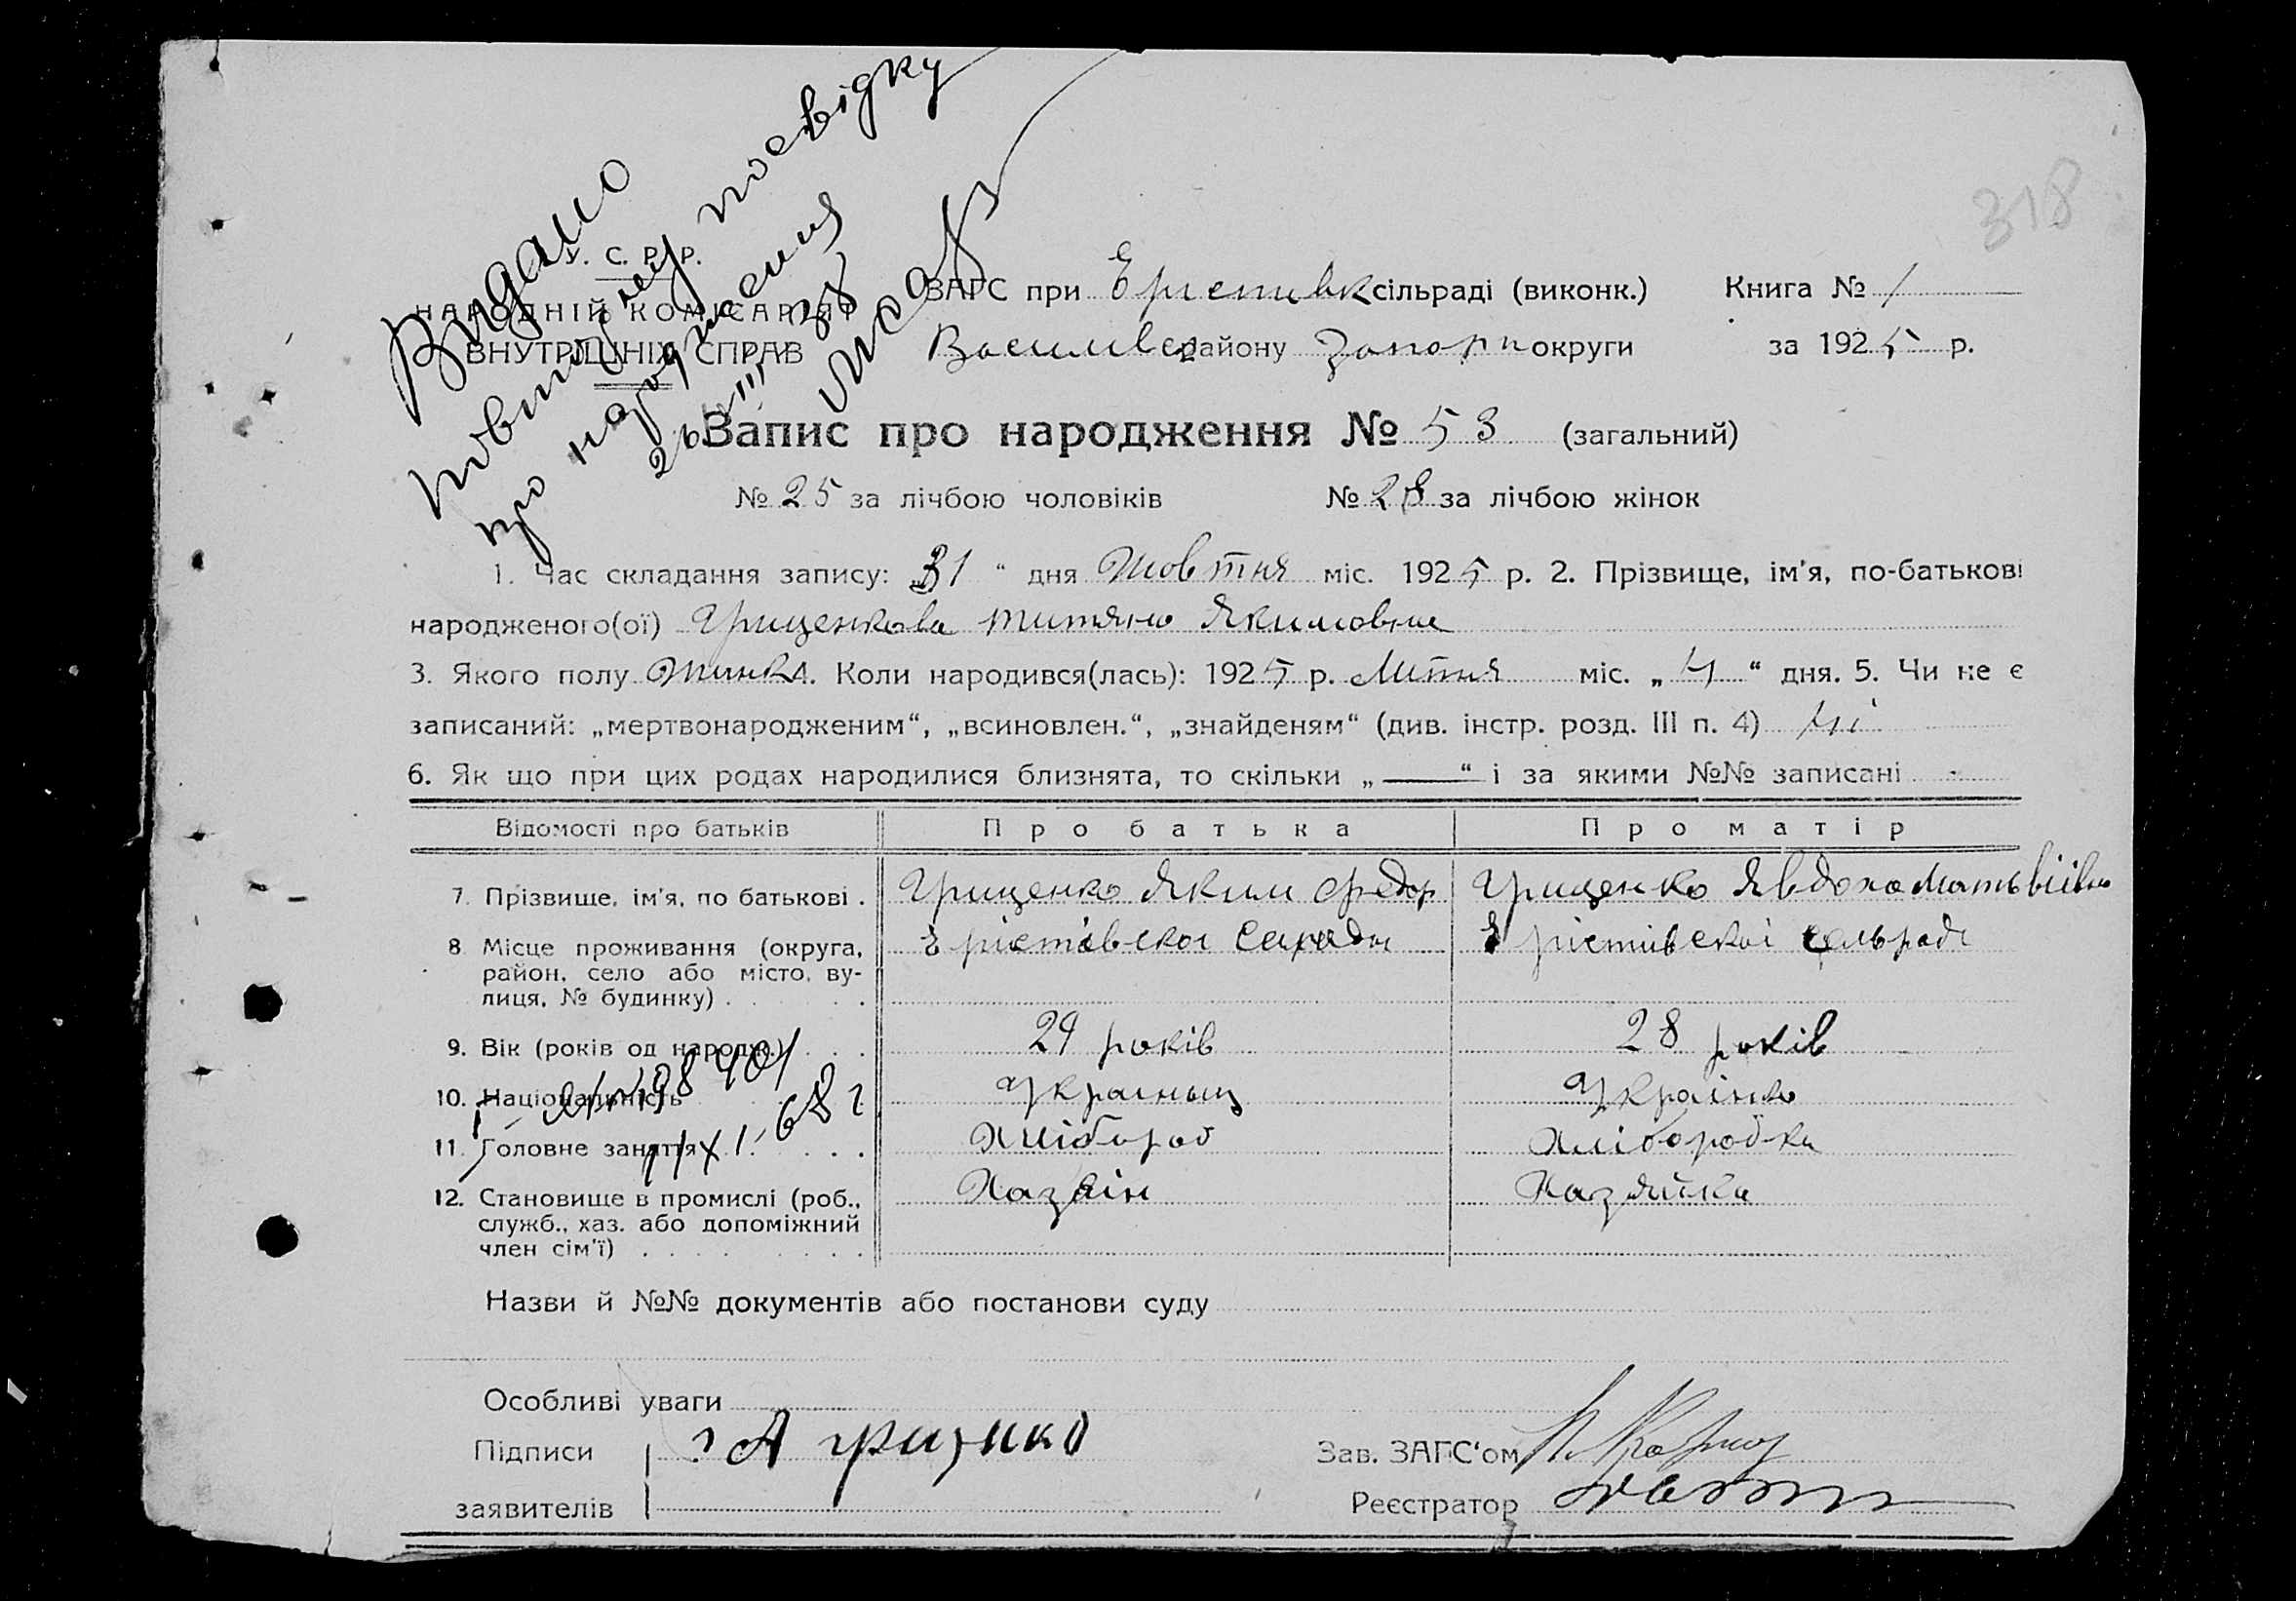 318
Видано
повторну посвідку
про народження
26/III 38
У. С. Р. Р.
НАРОДНІЙ КОМІСАРІЯТ
ВНУТРІШНІХ СПРАВ
ЗАГС при Ерістивк сільраді (виконк.) Книга № 1
Василівс району Запоріж округи за 1925 р.
Запис про народження № 53 (загальний)
№ 25 за лічбою чоловіків № 28 за лічбою жінок
1. Час складання запису: 31 “ дня Жовтня міс. 1925 р. 2. Прізвище, ім'я, по-батькові
народженого(ої) Грищенкова Титяна Якимовна
3. Якого полу Жинка 4. Коли народився(лась): 1925 р. Липня міс. „ “ дня. 5. Чи не є
записаний: „мертвонародженим“, „всиновлен.“, „знайденям“ (див. інстр. розд. III п. 4) ні
6. Як що при цих родах народилися близнята, то скільки „—“ і за якими №№ записані -
Відомості про батьків Про батька Про матір
7. Прізвище, ім'я, по батькові . Грищенко Яким Федор Грищенко Явдоха Матьвіівна
8. Місце проживання (округа, Ерістівскоі Ерістівскоі сельради
район, село або місто, ву-
лиця, № будинку) . . .
9. Вік (років од народж.) . . 29 років 28 років
10. Національність Украінець Украінка
11. Головне заняття . . . . Хлібороб Хліборобка
12. Становище в промислі (роб., Хазяін Хазяйка
служб., хаз. або допоміжний
член сім'ї) . . . . . . .
98401
11/XI-68 г
Назви й №№ документів або постанови суду
Особливі уваги
Підписи А Грищенко Зав. ЗАГС'ом
заявителів Реєстратор